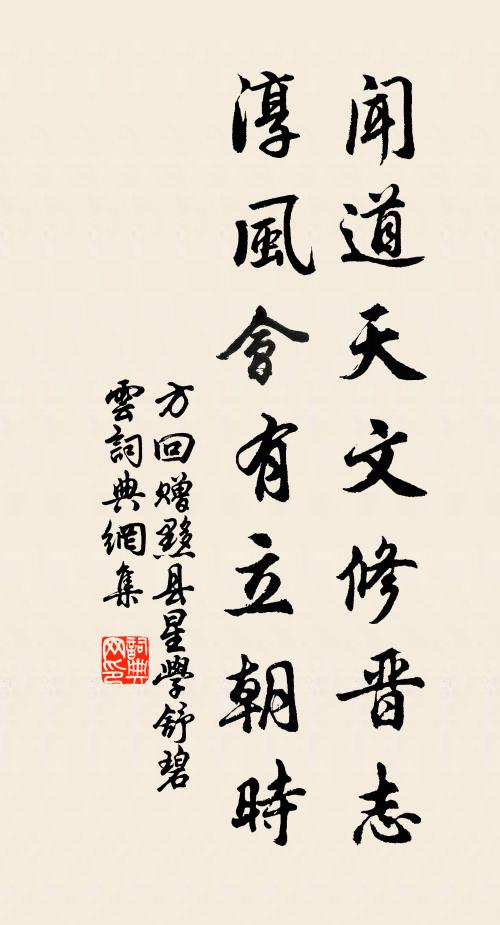 聞道天文修晋志
淳風會有立朝時
方回赠黟县星學舒碧
雲詞典網集
詞典網印